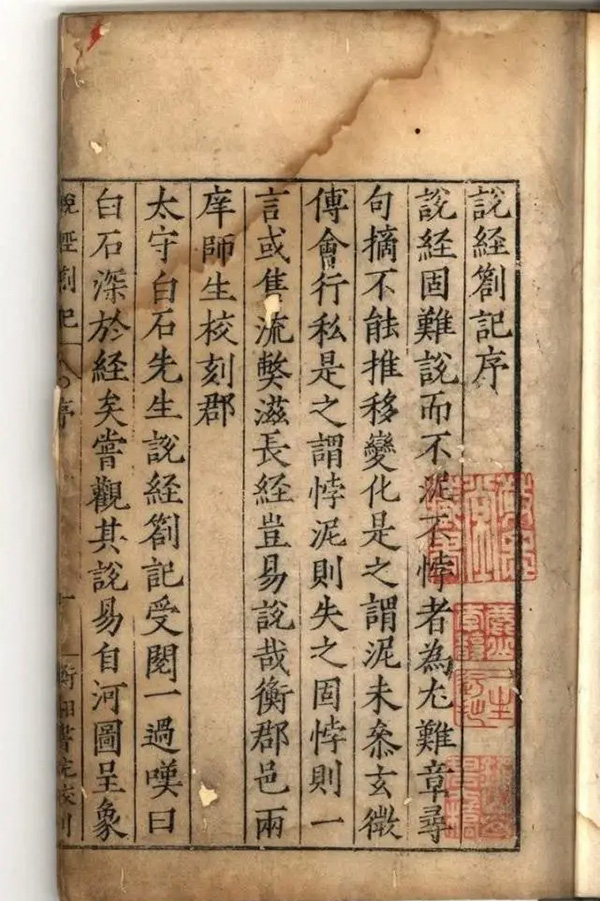 說經劄記序
說經固難說而不泥不悖者為尤難章尋
句摘不能推移變化是之謂泥未叅玄微
傅會行私是之謂悖泥則失之固悖則一
言或售流獘滋長經豈易說哉衡郡邑兩
庠師生校刻郡
太守白石先生說經劄記受閱一過嘆曰
白石深於經矣嘗觀其說易自河圖呈象
說經劄記 序 一 衡湘書院校刊